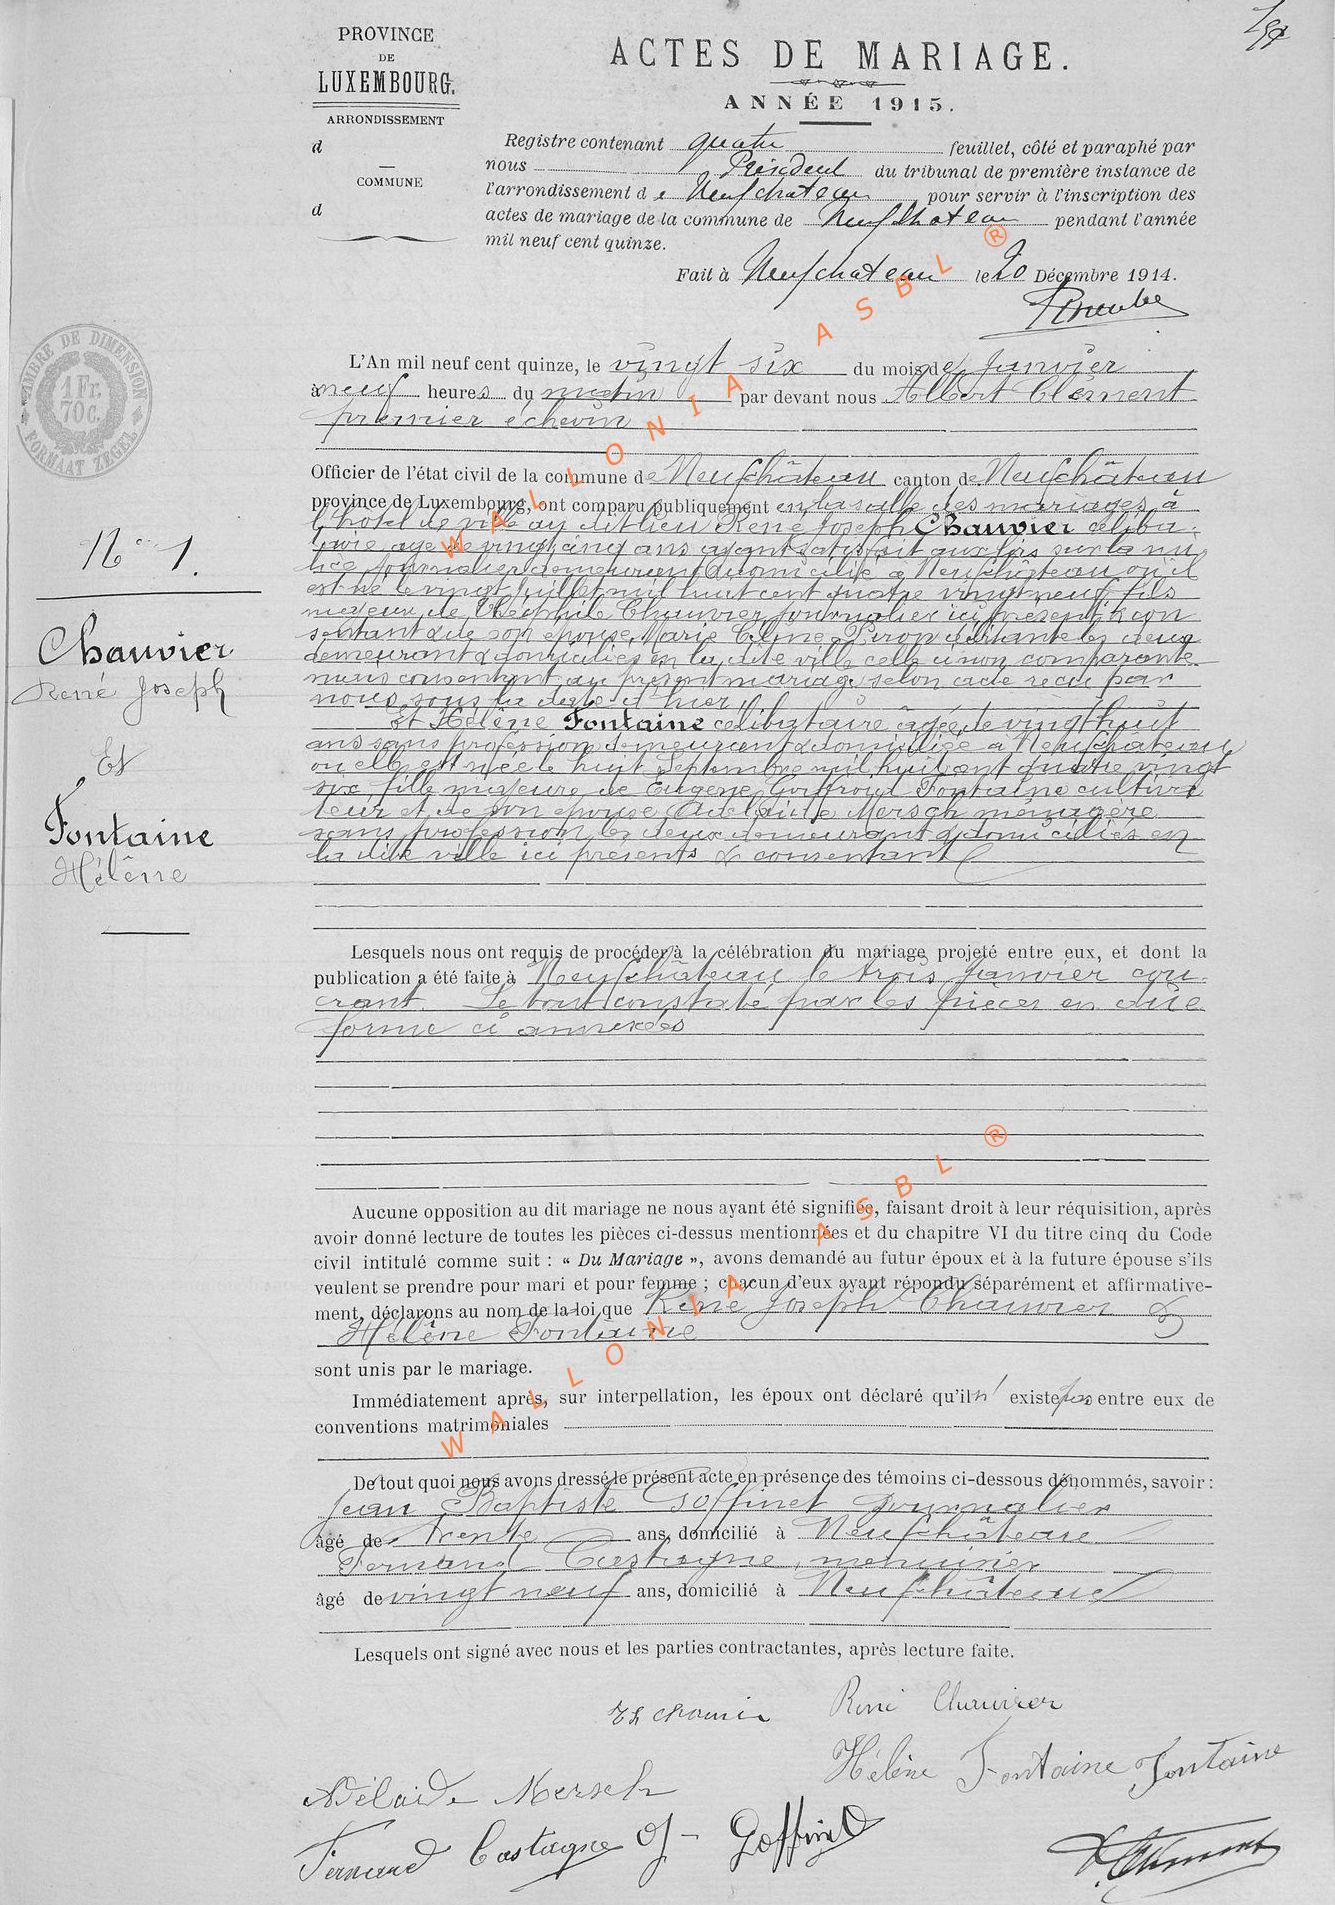 PROVINCE
DE
LUXEMBOURG.
ARRONDISSEMENT
d
COMMUNE
d
ACTES DE MARIAGE.
ANNÉE 1915.
Registre contenant quatre feuillet, côté et paraphé par
nous Président du tribunal de première instance de
l'arrondissement de Neufchateau pour servir à l'inscription des
actes de mariage de la commune de Neufchateau pendant l'année
mil neuf cent quinze.
Fait à Neufchateau le 20 Décembre 1914.
CHAMBRE DE DIMENSION
1 Fr.
70 c.
FORMAAT ZEGEL
L'An mil neuf cent quinze, le vingt six du mois de Janvier
à neuf heures du matin par devant nous Albert Clément
premier échevin
Officier de l'état civil de la commune de Neufchâteau canton de Neufchâteau
province de Luxembourg, ont comparu publiquement en la salle des mariages à
l'hôtel de ville au dit lieu René Joseph Chauvier céliba-
taire âgé de vingt cinq ans ayant satisfait aux lois sur la mi
lice journalier demeurant & domicilié à Neufchâteau où il
est né le vingt juillet mil huit cent quatre vingt neuf fils
majeur de Théophile Chauvier journalier ici présent & con
sentant & de son épouse Marie Céline Piron les deux
demeurant & domiciliés en la dite ville celle ci non comparante
mais consentant au présent mariage selon acte reçu par
nous sous la date d'hier
Et Hélène Fontaine célibataire âgée de vingt huit
ans sans profession demeurant & domiciliée à Neufchâteau
où elle est née le huit Septembre mil huit cent quatre vingt
six fille majeure de Eugène Godfroid Fontaine cultiva
teur et de son épouse Adélaïde Mersch ménagère
sans profession les deux demeurant & domiciliés en
la dite ville ici présents & consentant
N° 1.
Chauvier
René Joseph
Et
Fontaine
Hélène
Lesquels nous ont requis de procéder à la célébration du mariage projeté entre eux, et dont la
publication a été faite à Neufchâteau le trois Janvier cou-
rant. Le tout constaté par les pièces en due
forme ci annexées
Aucune opposition au dit mariage ne nous ayant été signifiée, faisant droit à leur réquisition, après
avoir donné lecture de toutes les pièces ci-dessus mentionnées et du chapitre VI du titre cinq du Code
civil intitulé comme suit : « Du Mariage », avons demandé au futur époux et à la future épouse s'ils
veulent se prendre pour mari et pour femme ; chacun d'eux ayant répondu séparément et affirmative-
ment, déclarons au nom de la loi, que René Joseph Chauvier &
Hélène Fontaine
sont unis par le mariage.
Immédiatement après, sur interpellation, les époux ont déclaré qu'il n' existe pas entre eux de
conventions matrimoniales
De tout quoi nous avons dressé le présent acte en présence des témoins ci-dessous dénommés, savoir :
Jean Baptiste Goffinet journalier
âgé de trente ans, domicilié à Neufchâteau
Fernand Castagne, menuisier
âgé de vingt neuf ans, domicilié à Neufchâteau
Lesquels ont signé avec nous et les parties contractantes, après lecture faite.
René Chauvier
Hélène Fontaine Fontaine
Adélaïde Mersch
Fernand Castagne J- Goffinet
A. Clément
WALLONIA ASBL ®
WALLONIA ASBL ®